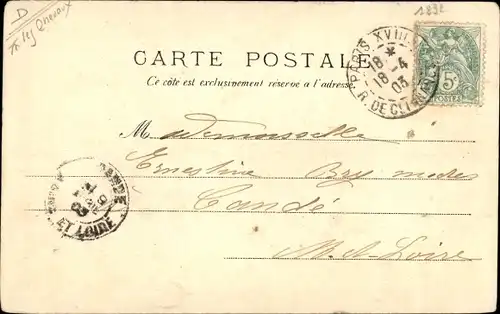 D
1892
CARTE POSTALE
Ce côté est exclusivement réservé à l'adresse
PARIS XVIII
18-4
03
R. DE CLIGNANC
5c
POSTES
Mademoiselle
Ernestine Bry modes
Candé
M. et Loire
CANDÉ
19
03
ET LOIRE